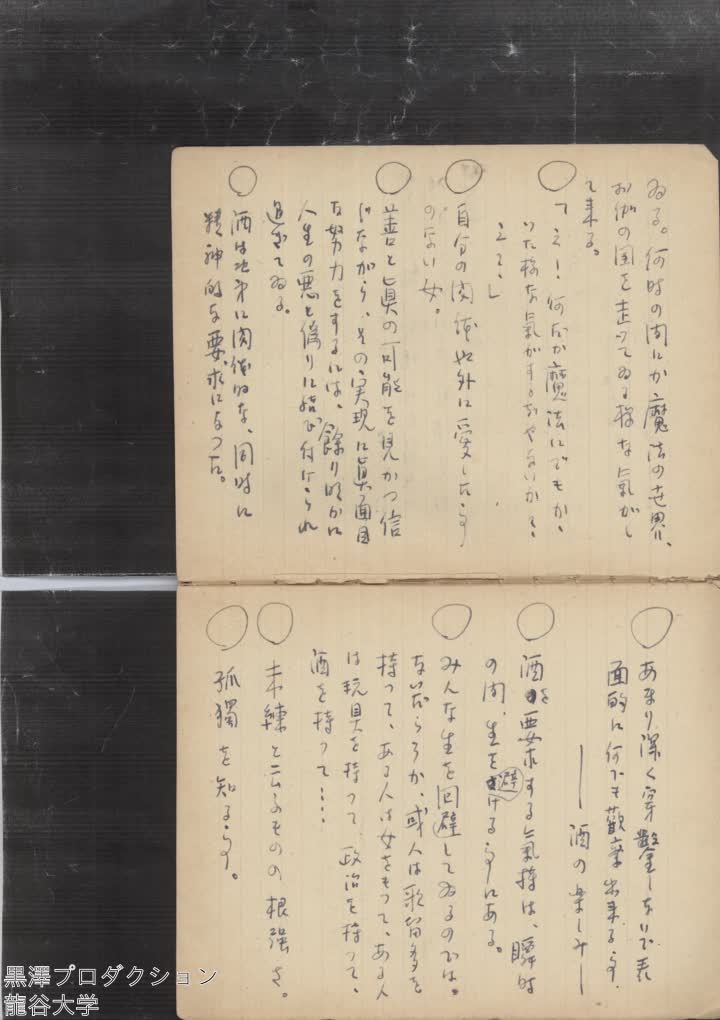 ゐる。何時の間にか魔法の世界、
お伽の国を走ってゐる様な氣がし
て来る。
○
「え！何だか魔法にでもか、
いた様な氣がするぢやないか？、
え？」
○
自分の肉体以外に愛した事
のない女。
○
善と眞の可能を見かつ信
じながら、その実現に眞面目
な努力をするには、餘り明かに
人生の悪と偽りに結び付けられ
過ぎてゐる。
○
酒は次第に肉体的な、同時に
精神的な要求になった。
○
あまり深く穿鑿しないで表
面的に何でも觀察出来る事、
――酒の楽しみ――
○
酒を要求する氣持は、瞬時
の間、生を避ける事にある。
○
みんな生を回避してゐるのでは
ないだらうか、或人は歌留多を
持って、ある人は女をもって、ある人
は玩具を持って、政治を持って、
酒を持って‥‥
○
未練と云ふものの根強さ。
○
孤獨を知る事。
黒澤プロダクション
龍谷大学